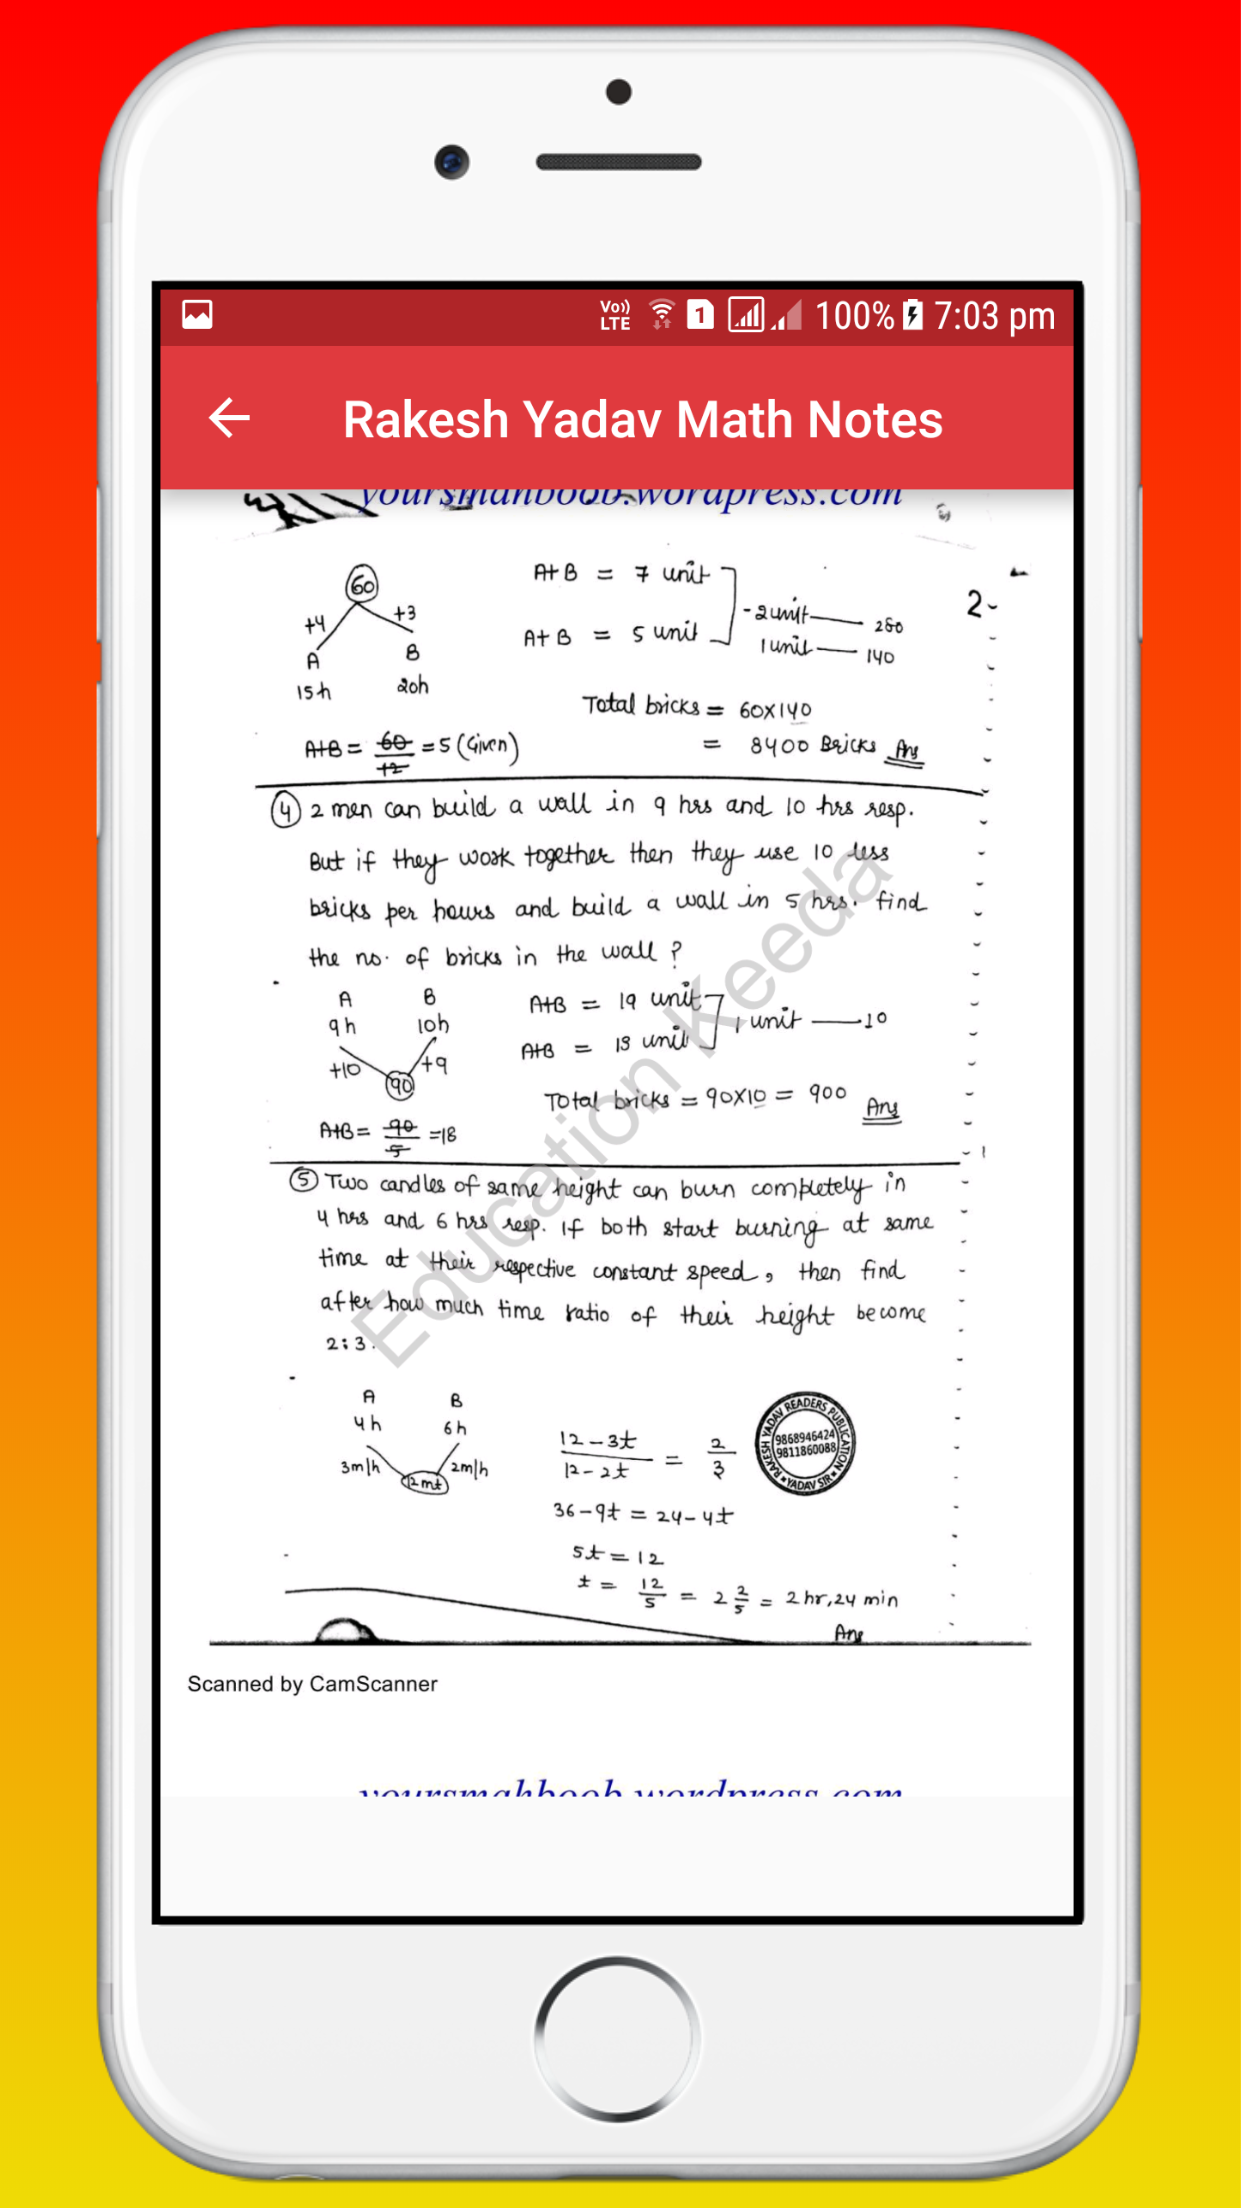 Vo)) LTE 1 100% 7:03 pm
Rakesh Yadav Math Notes
yoursmahboob.wordpress.com
60
+4 +3
A B
15h 20h
A+B = 60/12 = 5 (Given)
A+B = 7 unit
A+B = 5 unit
-2unit — 280
1 unit — 140
2-
Total bricks = 60x140
= 8400 Bricks Ans
4 2 men can build a wall in 9 hrs and 10 hrs resp.
But if they work together then they use 10 less
bricks per hours and build a wall in 5 hrs. find
the no. of bricks in the wall ?
A B
9h 10h
+10 +9
90
A+B = 90/5 = 18
A+B = 19 unit
A+B = 18 unit
1 unit — 10
Total bricks = 90x10 = 900 Ans
5 Two candles of same height can burn completely in
4 hrs and 6 hrs resp. If both start burning at same
time at their respective constant speed, then find
after how much time ratio of their height become
2:3.
A B
4h 6h
3m/h 2m/h
12mt
12-3t/12-2t = 2/3
36-9t = 24-4t
5t = 12
t = 12/5 = 2 2/5 = 2 hr, 24 min
Ans
RAKESH YADAV READERS PUBLICATION
9868946424
9811860088
YADAV SIR
Education Keeda
Scanned by CamScanner
yoursmahboob.wordpress.com